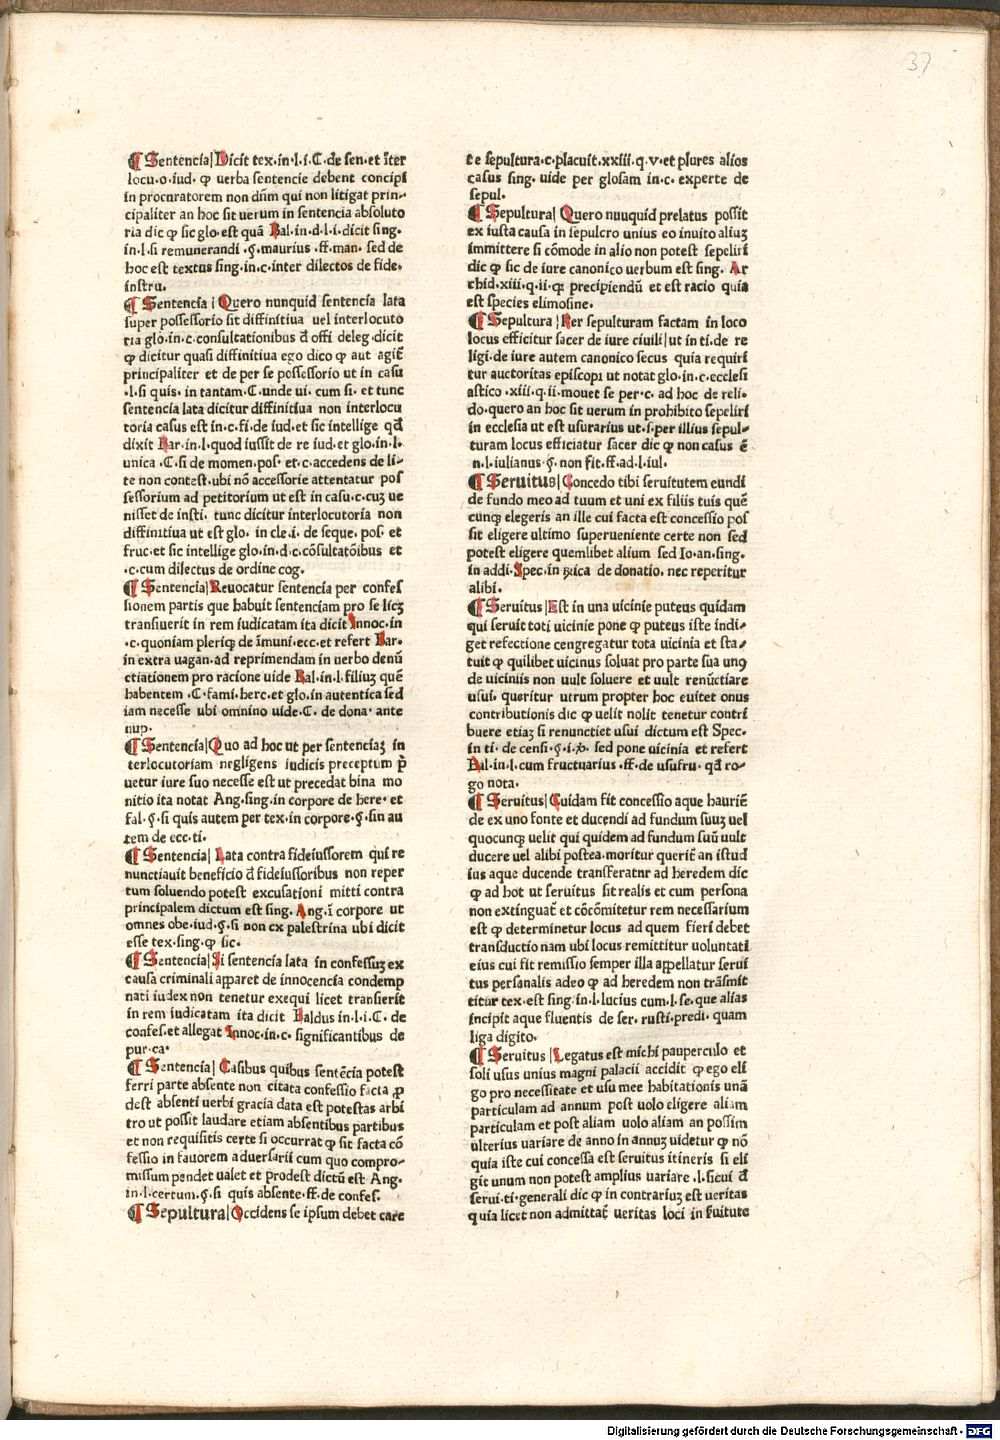 37
¶ Sentencia| Dicit tex.in.l.i.C.de sen.et īter
locu.o.iud. ꝙ uerba sentencie debent concipi
in procuratorem non dn̄m qui non litigat prin-
cipaliter an hoc sit uerum in sentencia absoluto
ria dic ꝙ sic glo.est quā Bal.in.d.l.i.dicit sing.
in.l.si remunerandi .§.maurius .ff.man. sed de
hoc est textus sing.in.c.inter dilectos de fide.
instru.
¶ Sentencia| Quero nunquid sentencia lata
super possessorio sit diffinitiua uel interlocuto
ria glo.in.c.consultationibus đ offi deleg.dicit
ꝙ dicitur quasi diffinitiua ego dico ꝙ aut agit᷑
principaliter et de per se possessorio ut in casu
.l.si quis. in tantam.C.unde ui. cum si. et tunc
sentencia lata dicitur diffinitiua non interlocu
toria casus est in.c.fi.de iud.et sic intellige qđ
dixit Bar.in.l.quod iussit de re iud.et glo.in.l.
unica .C.si de momen.pos. et.c.accedens de li-
te non contest.ubi nō accessorie attentatur pos
sessorium ad petitorium ut est in casu.c.cuꝫ ue
nisset de insti. tunc dicitur interlocutoria non
diffinitiua ut est glo. in cle.i. de seque. pos. et
fruc.et sic intellige glo.in.d.c.cōsultatōibus et
.c.cum dilectus de ordine cog.
¶ Sentencia| Reuocatur sentencia per confes
sionem partis que habuit sentenciam pro se licꝫ
transiuerit in rem iudicatam ita dicit Innoc.in
.c.quoniam pleriqꝫ de īmuni.ecc.et refert Bar.
in extra uagan.ad reprimendam in uerbo denū
ctiationem pro racione uide Bal.in.l.filiuꝫ quē
habentem .C.fami.herc.et glo.in autentica sed
iam necesse ubi omnino uide.C. de dona. ante
nup.
¶ Sentencia| Quo ad hoc ut per sentenciaꝫ in
terlocutoriam negligens iudicis preceptum p̄
uetur iure suo necesse est ut precedat bina mo
nitio ita notat Ang.sing.in corpore de here. et
fal.§.si quis autem per tex.in corpore.§.sin au
tem de ecc.ti.
¶ Sentencia| Lata contra fideiussorem qui re
nunctiauit beneficio đ fideiussoribus non reper
tum soluendo potest excusationi mitti contra
principalem dictum est sing. Ang.ī corpore ut
omnes obe.iud.§.si non ex palestrina ubi dicit
esse tex.sing.ꝙ sic.
¶ Sentencia| Si sentencia lata in confessuꝫ ex
causa criminali apparet de innocencia condemp
nati iudex non tenetur exequi licet transierit
in rem iudicatam ita dicit Baldus in.l.i.C. de
confes.et allegat Innoc.in.c. significantibus de
pur.ca.
¶ Sentencia| Casibus quibus sentēcia potest
ferri parte absente non citata confessio facta ꝓ
dest absenti uerbi gracia data est potestas arbi
tro ut possit laudare etiam absentibus partibus
et non requisitis certe si occurrat ꝙ sit facta cō
fessio in fauorem aduersarii cum quo compro-
missum pendet ualet et prodest dictū est Ang.
in.l.certum.§.si quis absente.ff.de confes.
¶ Sepultura| Occidens se ipsum debet care
te sepultura.c.placuit.xxiii.q.v.et plures alios
casus sing. uide per glosam in.c. experte de
sepul.
¶ Sepultura| Quero nuuquid prelatus possit
ex iusta causa in sepulcro unius eo inuito aliuꝫ
immittere si cōmode in alio non potest sepeliri
dic ꝙ sic de iure canonico uerbum est sing. Ar
chid.xiii.q.ii.qꝫ precipiendū et est racio quia
est species elimosine.
¶ Sepultura| Per sepulturam factam in loco
locus efficitur sacer de iure ciuili| ut in ti.de re
ligi.de iure autem canonico secus quia requiri
tur auctoritas episcopi ut notat glo.in.c.ecclesi
astico .xiii.q.ii.mouet se per.c. ad hoc de reli.
do.quero an hoc sit uerum in prohibito sepeliri
in ecclesia ut est usurarius ut.s.per illius sepul-
turam locus efficiatur sacer dic ꝙ non casus ē
n.l.iulianus.§.non fit.ff.ad.l.iul.
¶ Seruitus| Concedo tibi seruitutem eundi
de fundo meo ad tuum et uni ex filiis tuis quē
cunqꝫ elegeris an ille cui facta est concessio pos
sit eligere ultimo superueniente certe non sed
potest eligere quemlibet alium sed Io.an.sing.
in addi.Spec.in rubrica de donatio. nec reperitur
alibi.
¶ Seruitus| Est in una uicinie puteus quidam
qui seruit toti uicinie pone ꝙ puteus iste indi-
get refectione cengregatur tota uicinia et sta-
tuit ꝙ quilibet uicinus soluat pro parte sua unꝰ
de uiciniis non uult soluere et uult renūctiare
usui. queritur utrum propter hoc euitet onus
contributionis dic ꝙ uelit nolit tenetur contri
buere etiaꝫ si renunctiet usui dictum est Spec.
in ti. de censi.§.i. sed pone uicinia et refert
Bal.in.l.cum fructuarius .ff.de usufru. qđ ro-
go nota.
¶ Seruitus| Cuidam fit concessio aque hauriē
de ex uno fonte et ducendi ad fundum suuꝫ uel
quocunqꝫ uelit qui quidem ad fundum suū uult
ducere uel alibi postea.moritur querit᷑ an istud
ius aque ducende transferatnr ad heredem dic
ꝙ ad hot ut seruitus sit realis et cum persona
non extinguat᷑ et cōcōmitetur rem necessarium
est ꝙ determinetur locus ad quem fieri debet
transductio nam ubi locus remittitur uoluntati
eius cui fit remissio semper illa appellatur serui
tus personalis adeo ꝙ ad heredem non trāsmit
titur tex.est sing.in.l.lucius cum.l.se.que alias
incipit aque fluentis de ser. rusti.predi. quam
liga digito.
¶ Seruitus| Legatus est michi pauperculo et
soli usus unius magni palacii accidit ꝙ ego eli
go pro necessitate et usu mee habitationis unā
particulam ad annum post uolo eligere aliam
particulam et post aliam uolo aliam an possim
ulterius uariare de anno in annuꝫ uidetur ꝙ nō
quia iste cui concessa est seruitus itineris si eli
git unum non potest amplius uariare .l.sicui đ
serui.ti.generali dic ꝙ in contrariuꝫ est ueritas
quia licet non admittat᷑ ueritas loci in s̄uitute
Digitalisierung gefördert durch die Deutsche Forschungsgemeinschaft - DFG